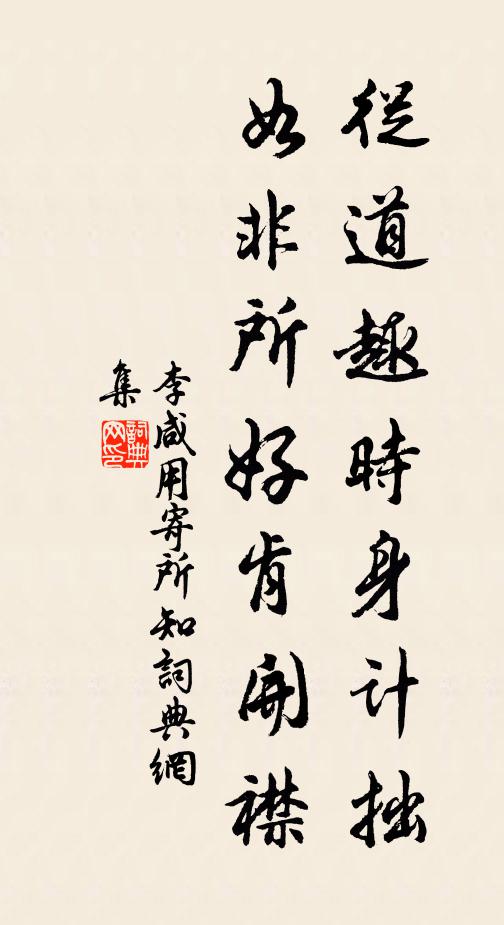 從道趣時身計拙
如非所好肯開襟
李咸用寄所知詞典網
集
詞典
网印